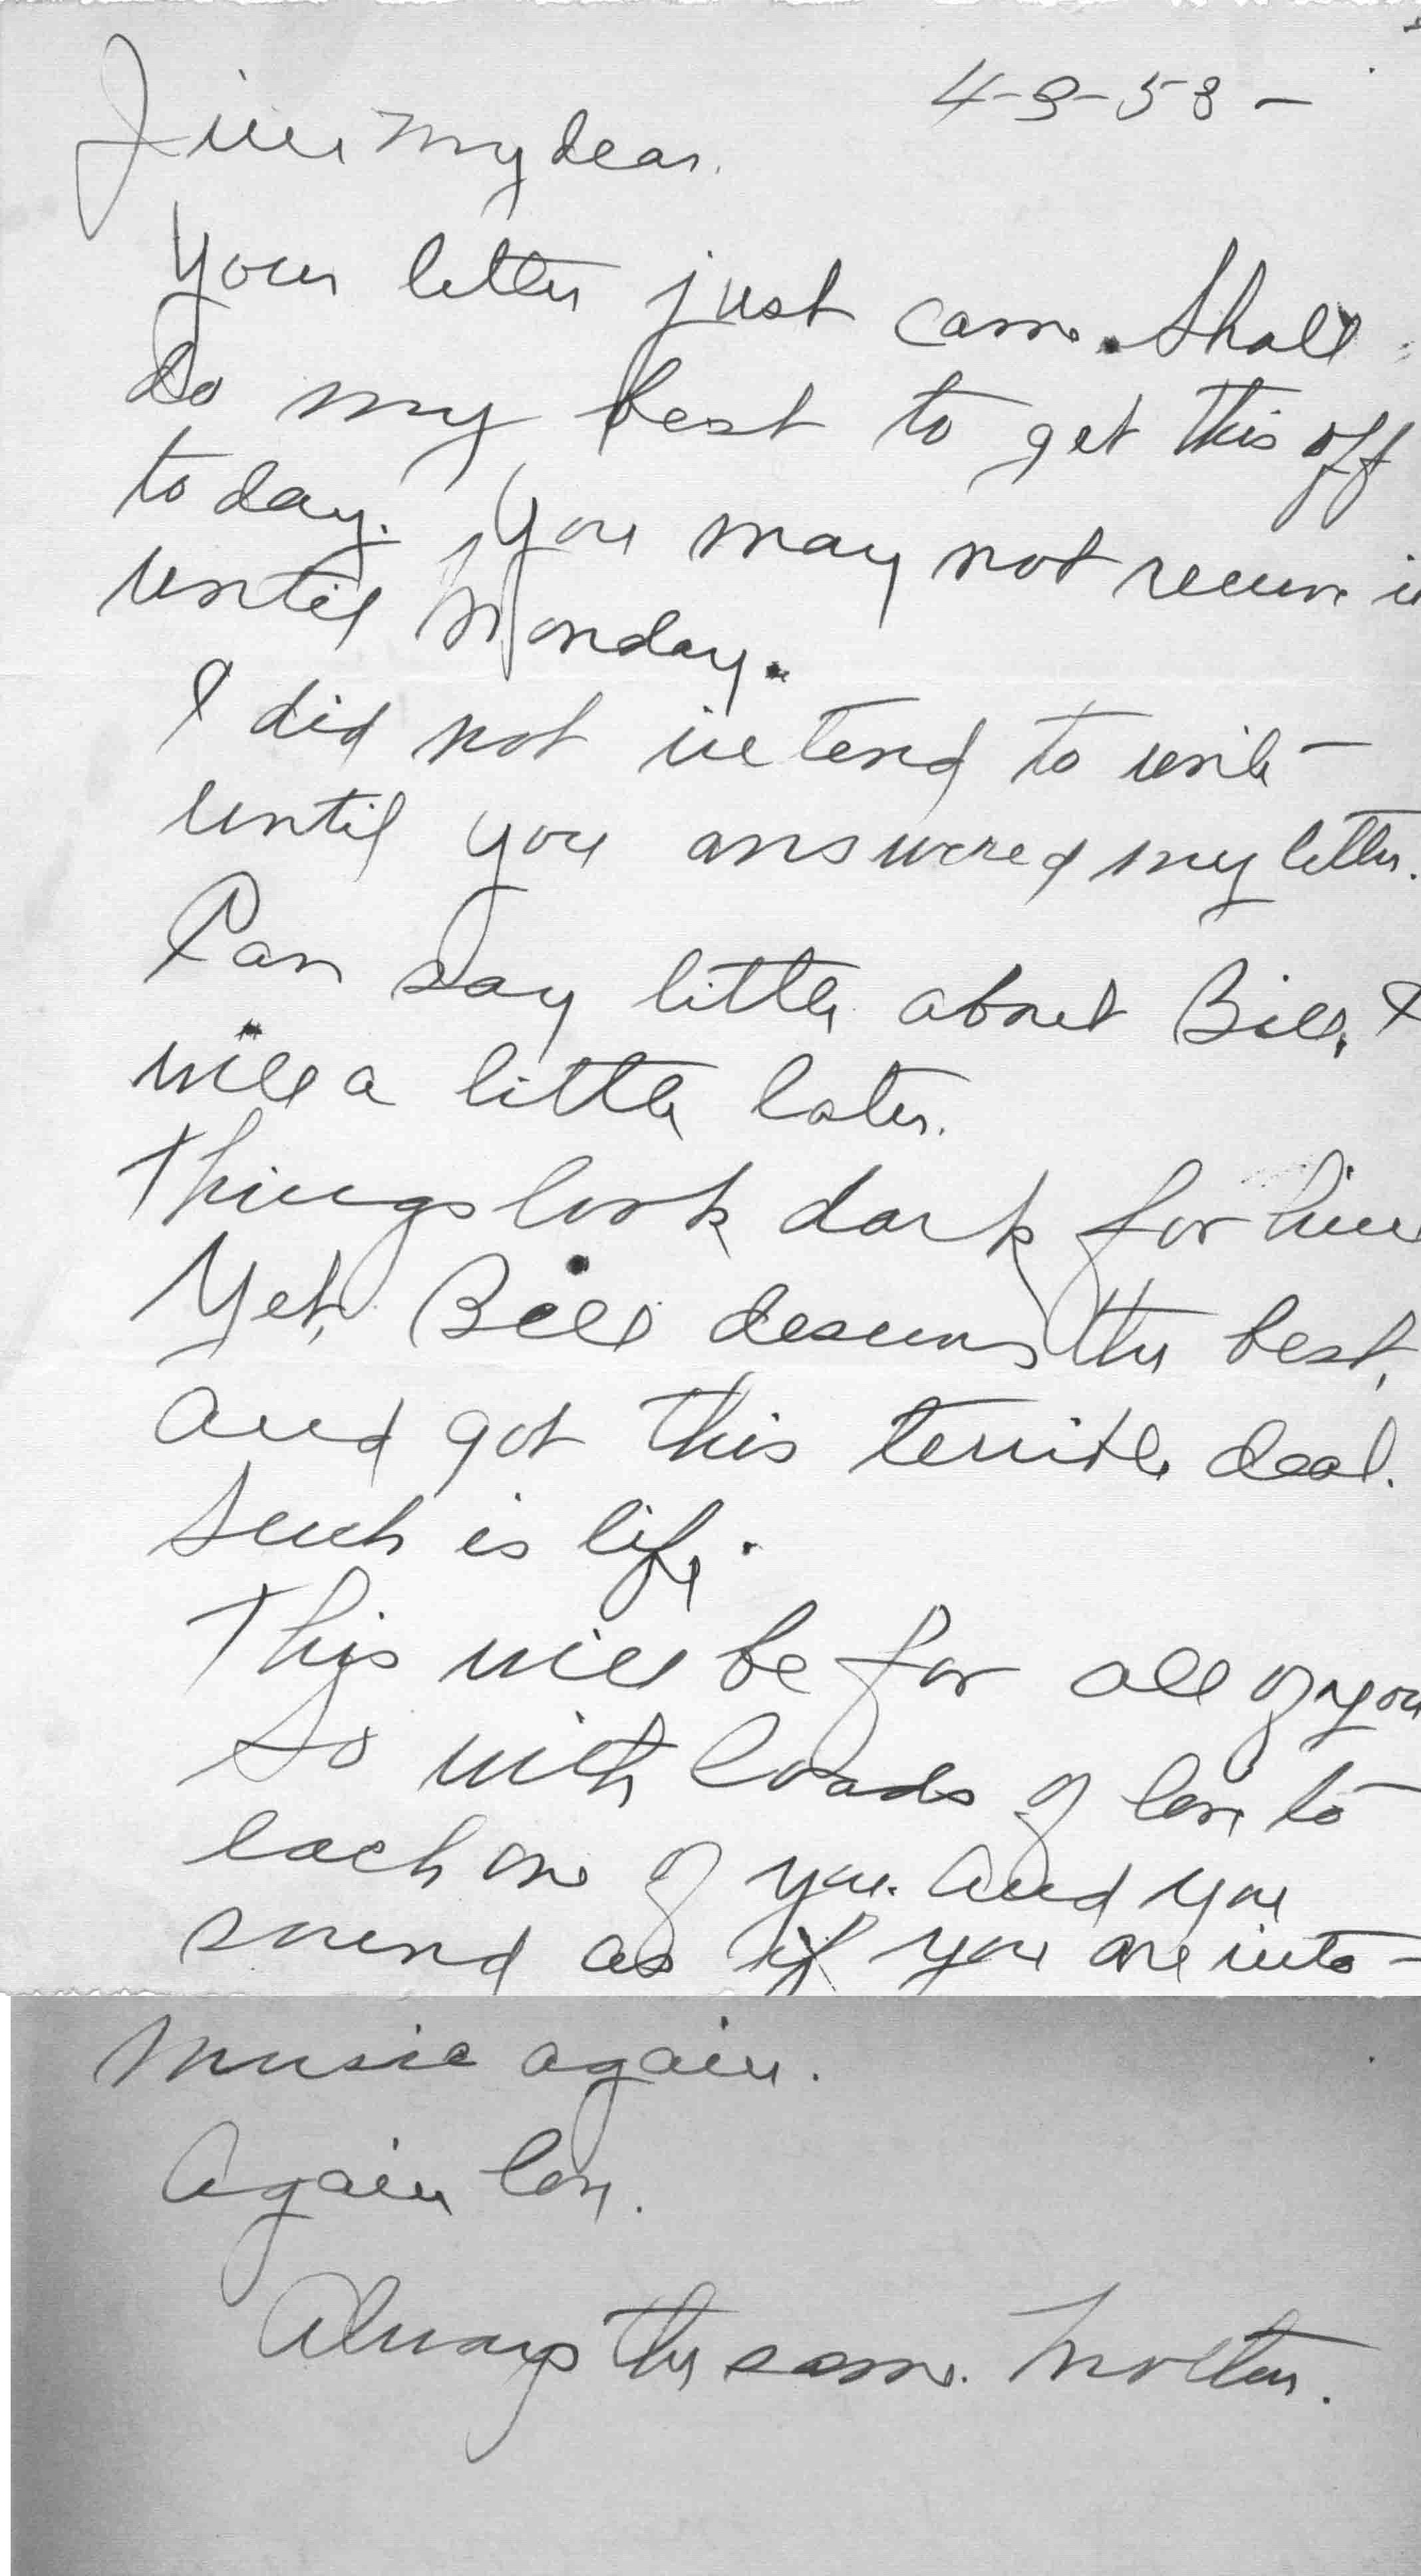 4-3-58-
Jim my dear.
Your letter just came. Shall
do my best to get this off
today. You may not receive it
until Monday.
I did not intend to write
until you answered my letter.
Can say little about Bill, I
will a little later.
Things look dark for him
Yet, Bill deserves the best,
and got this terrible deal.
Such is life.
This will be for all of you
So with loads of love to
each one of you. And you
sound as if you are into
music again.
Again love.
Always the same. Mother.